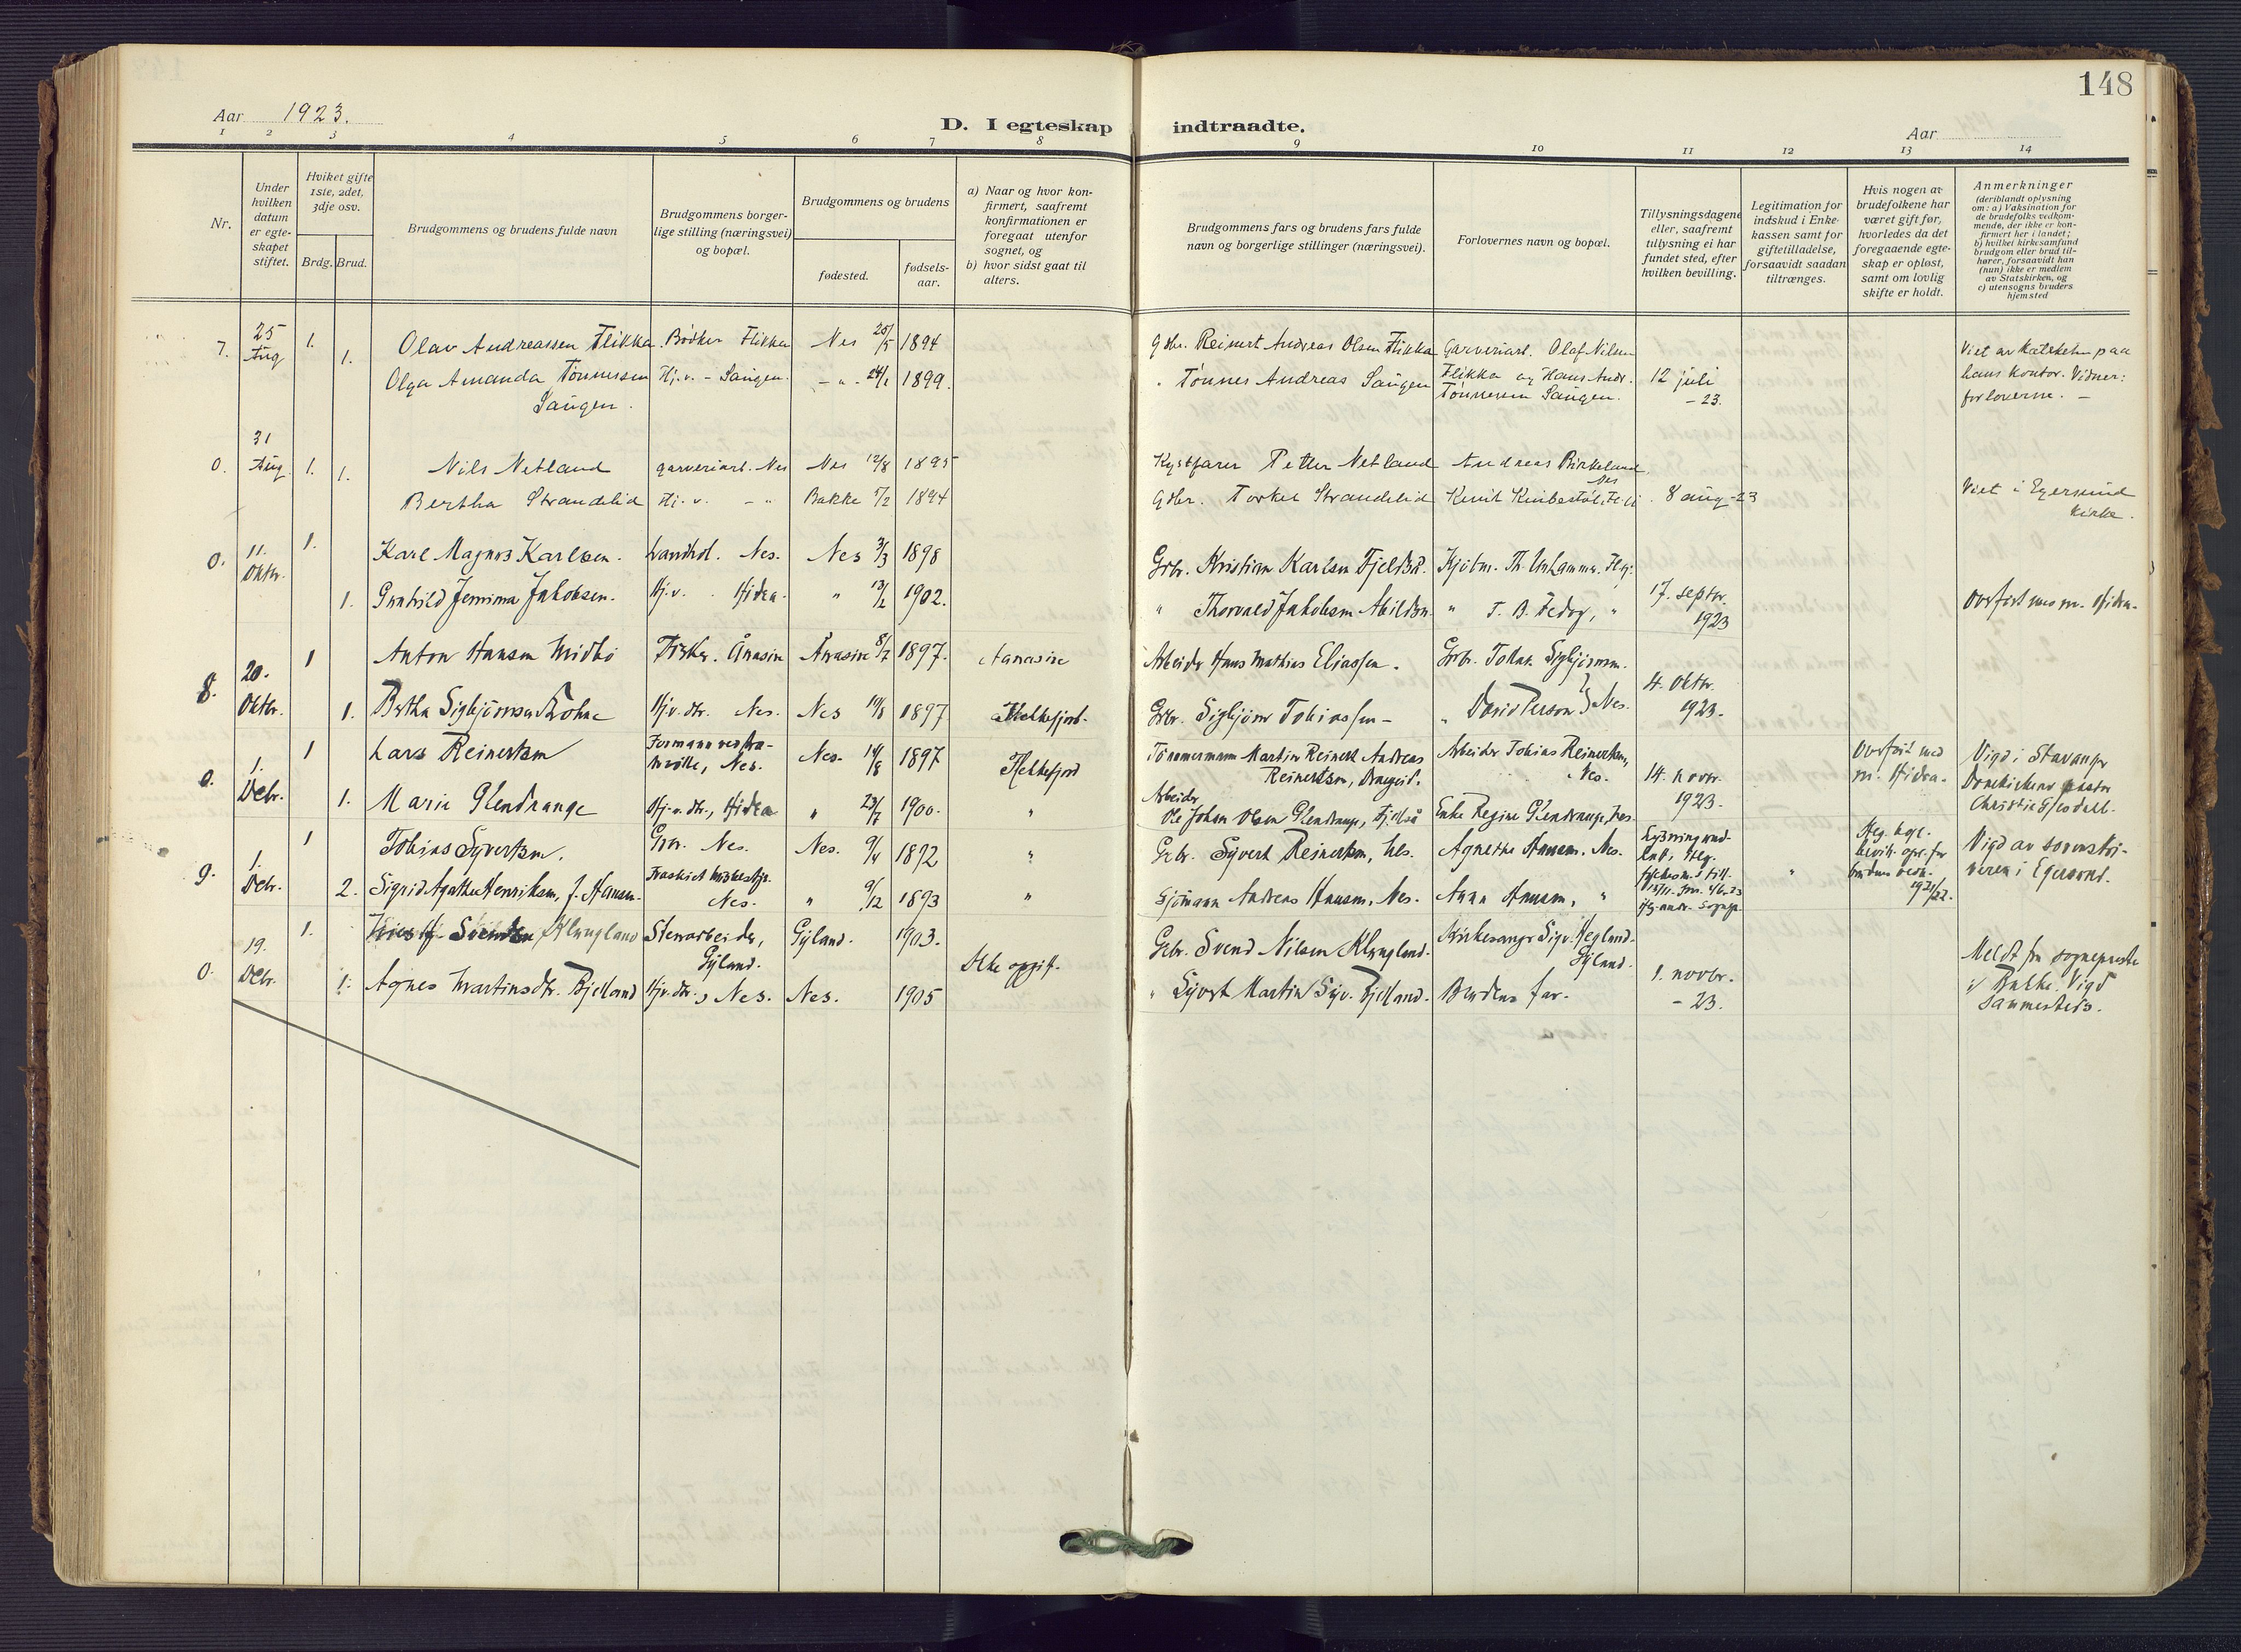 148
Aar 1923.
D. I egteskap indtraadte.
Aar
1 2 3 4 5 6 7 8 9 10 11 12 13 14
Nr.
Under hvilken datum er egte- skapet stiftet.
Hvilket gifte 1ste, 2det, 3dje osv.
Brdg. Brud.
Brudgommens og brudens fulde navn
Brudgommens borger- lige stilling (næringsvei) og bopæl.
Brudgommens og brudens
fødested.
fødsels- aar.
a) Naar og hvor kon- firmert, saafremt konfirmationen er foregaat utenfor sognet, og
b) hvor sidst gaat til alters.
Brudgommens fars og brudens fars fulde navn og borgerlige stillinger (næringsvei).
Forlovernes navn og bopæl.
Tillysningsdagene eller, saafremt tillysning ei har fundet sted, efter hvilken bevilling.
Legitimation for indskud i Enke- kassen samt for giftetilladelse, forsaavidt saadan tiltrænges.
Hvis nogen av brudefolkene har været gift før, hvorledes da det foregaaende egte- skap er opløst, samt om lovlig skifte er holdt.
Anmerkninger (deriblandt oplysning om: a) Vaksination for de brudefolks vedkom- mende, der ikke er kon- firmert her i landet; b) hvilket kirkesamfund brudgom eller brud til- hører, forsaavidt han (hun) ikke er medlem av Statskirken, og c) utensogns bruders hjemsted
7. 25 Aug 1. Olav Andreassen Flikka. Bødker Flikka Nes 25/5 1894 Gdbr. Reinert Andreas Olsen Flikka Garveriarb. Olaf Nilsen Viet av Kapellan paa
1. Olga Amanda Tønnessen Hj.v. - Saugen. - " - 24/1 1899. " Tønnes Andreas Saugen Flikka og Hans Andr. 12 juli hans kontor. Vidner:
Saugen. Tønnessen Saugen. - 23. forloverne. -
0. 31 Aug 1. 1. Nils Netland garveriarb. Nes Nes 12/8 1895 Kystfarer Petter Netland Andreas Birkeland Nes
Bertha Strandelid Hj.v. - " Bakke 5/2 1894 Gdbr. Torkel Strandelid 8 aug -23 Viet i Egersund
kirke.
0. 11. Oktbr. 1. Karl Magnus Karlsen. Nes. Nes 3/3 1898 Grbr. Kristian Karlsen Fjeldså.
1. Gunhild Jemima Jakobsen. Hj.v. Hidra. " 13/2 1902. " Thorvald Jakobsen " T. B. Fedog, " 17. septbr. 1923 Overført med m. Hidra.
8. 20. Oktbr. 1 Anton Hansen Midbø Fisker. Ånasira Ånasira 8/7 1897. Aanasira Arbeider Hans Mathias Eliassen. Grbr. Tobias Sigbjørnsen.
1. Bertha Sigbjørnsen Hj.v. dtr. Nes. Nes 1897 Flekkefjord. Grbr. Sigbjørn Tobiassen - " David Person Nes. 4. Oktbr. 1923.
0. 1. Debr. 1 Lars Reinertsen Formann ved Nes. Nes. 14/8 1897 Flekkefjord Tømmermann Martin Reinert Andreas Reinertsen, Draugeid. Arbeider Tobias Reinertsen, Nes. 14. novbr. 1923. Overført med m. Hidra. Vigd i Stavanger Domkirke av pastor Christie
1. Marie Glendrange Hj.v. dtr., Hidra " 23/7 1900. " Arbeider Ole Johan Olsen Glendrange, Fjellså Enke Regine Glendrange, Nes.
9. 1. Debr. 1 Tobias Syvertsen. Grbr. Nes. Nes. 9/4 1892 " Grbr. Syvert Reinertsen, Nes. Agnethe Hansen. Nes. Vigd av sorenskri- veren i Egersund.
2. Sigrid Agathe Henriksen, f. Hansen. Nes. " 9/12 1893 " Sjømann Andreas Hansen, Nes. Anna Hansen, " 1921/22.
0. 19. Debr. 1. Svendsen Klungland Stenarbeider, Gyland. Gyland. 1903. Ikke opgitt. Grbr. Svend Nilsen Klungland. Kirkesanger Sigv. Hegland. Gyland. Meldt fra sogneprest i Bakke. Vigd sammesteds.
1. Agnes Martinsdtr. Bjelland Hj.v. dtr., Nes. Nes. 1905 " Syvert Martin Syv. Bjelland. Brudens far. 1. novbr. - 23.